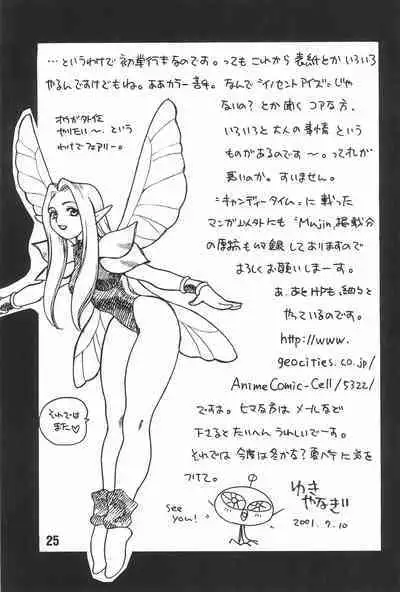 …というわけで 初単行本なのです。ってもこれから 表紙とかいろいろ
やるんですけどもね。ああカラー苦手。なんで"イノセントアイズ"じゃ
ないの？とか聞く コアな方、
いろいろと大人の事情 という
ものがあるのです〜。ってそれが
悪いのか。すいません。
"キャンディータイム"に載った
マンガ以外にも "Mujin"掲載分
の原稿も収録しておりますので
よろしくお願いしまーす。
あ、あとHPも、細々と
やっているのです。
http://www.
geocities.co.jp/
AnimeComic-Cell/5322/
ですよ。ヒマな方は メールなど
下さると たいへん うれしいでーす。
それでは 今度は冬かな？夏バテに気を
つけて。
やりたい〜。という
わけでフェアリー。
それでは
また♡
See
you!
ゆき
やなぎ
2001.7.10
25